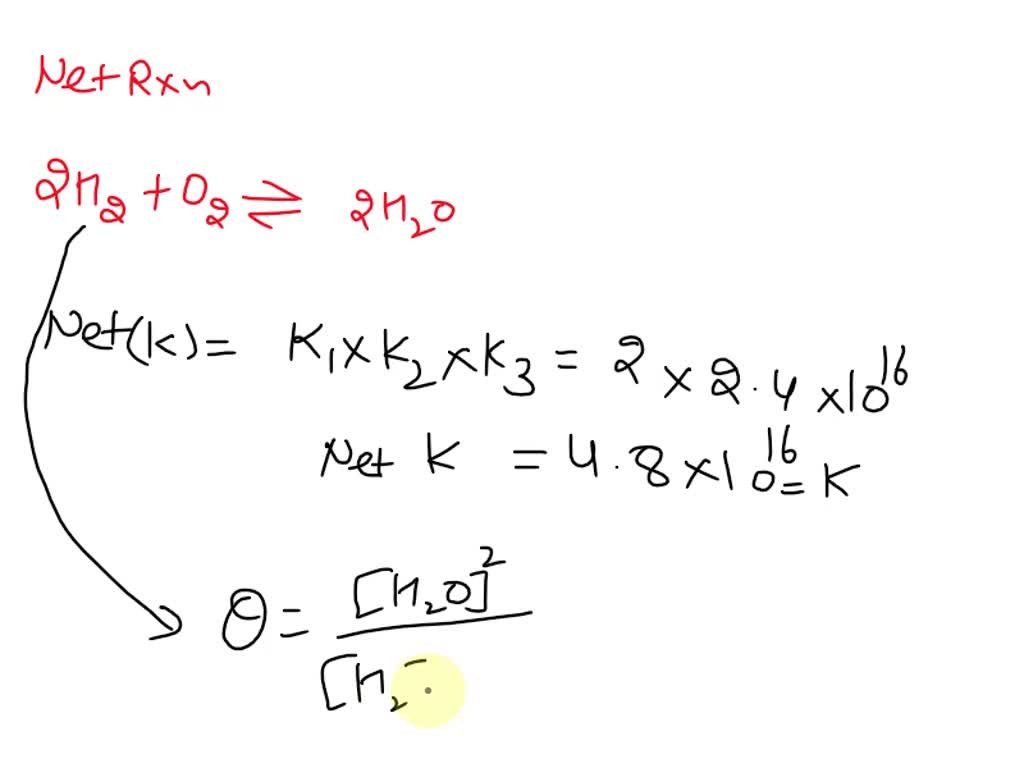 Net Rxn
2H₂ + O₂ ⇌ 2H₂O
Net(K) = K₁ × K₂ × K₃ = 2 × 2.4 × 10¹⁶
Net K = 4.8 × 10¹⁶ = K
Q = [H₂O]²
[H₂